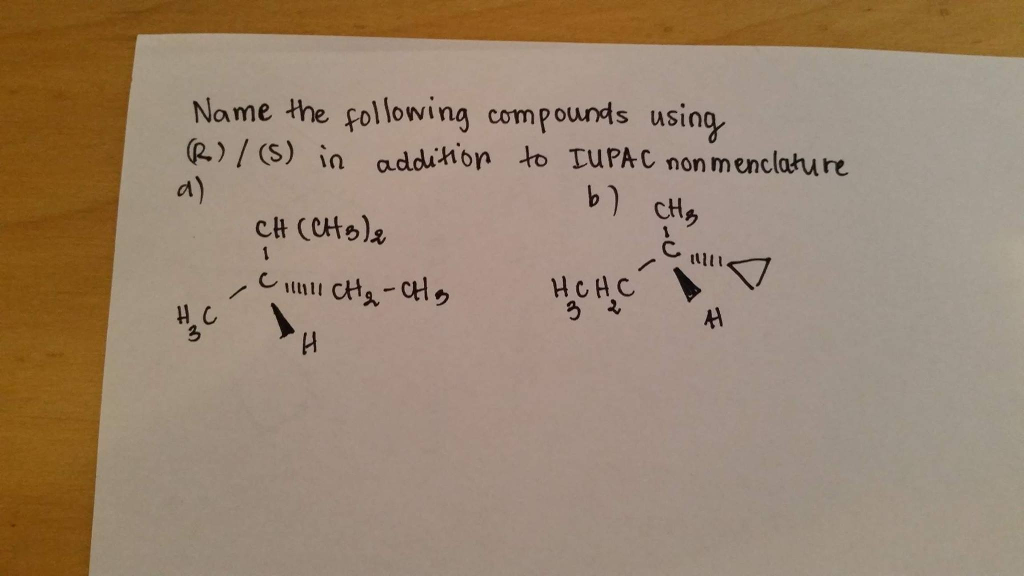 Name the following compounds using
(R) / (S) in addition to IUPAC nonmenclature
a)
CH (CH3)2
C
CH2-CH3
H3C
H
b)
CH3
C
H3C H2C
H